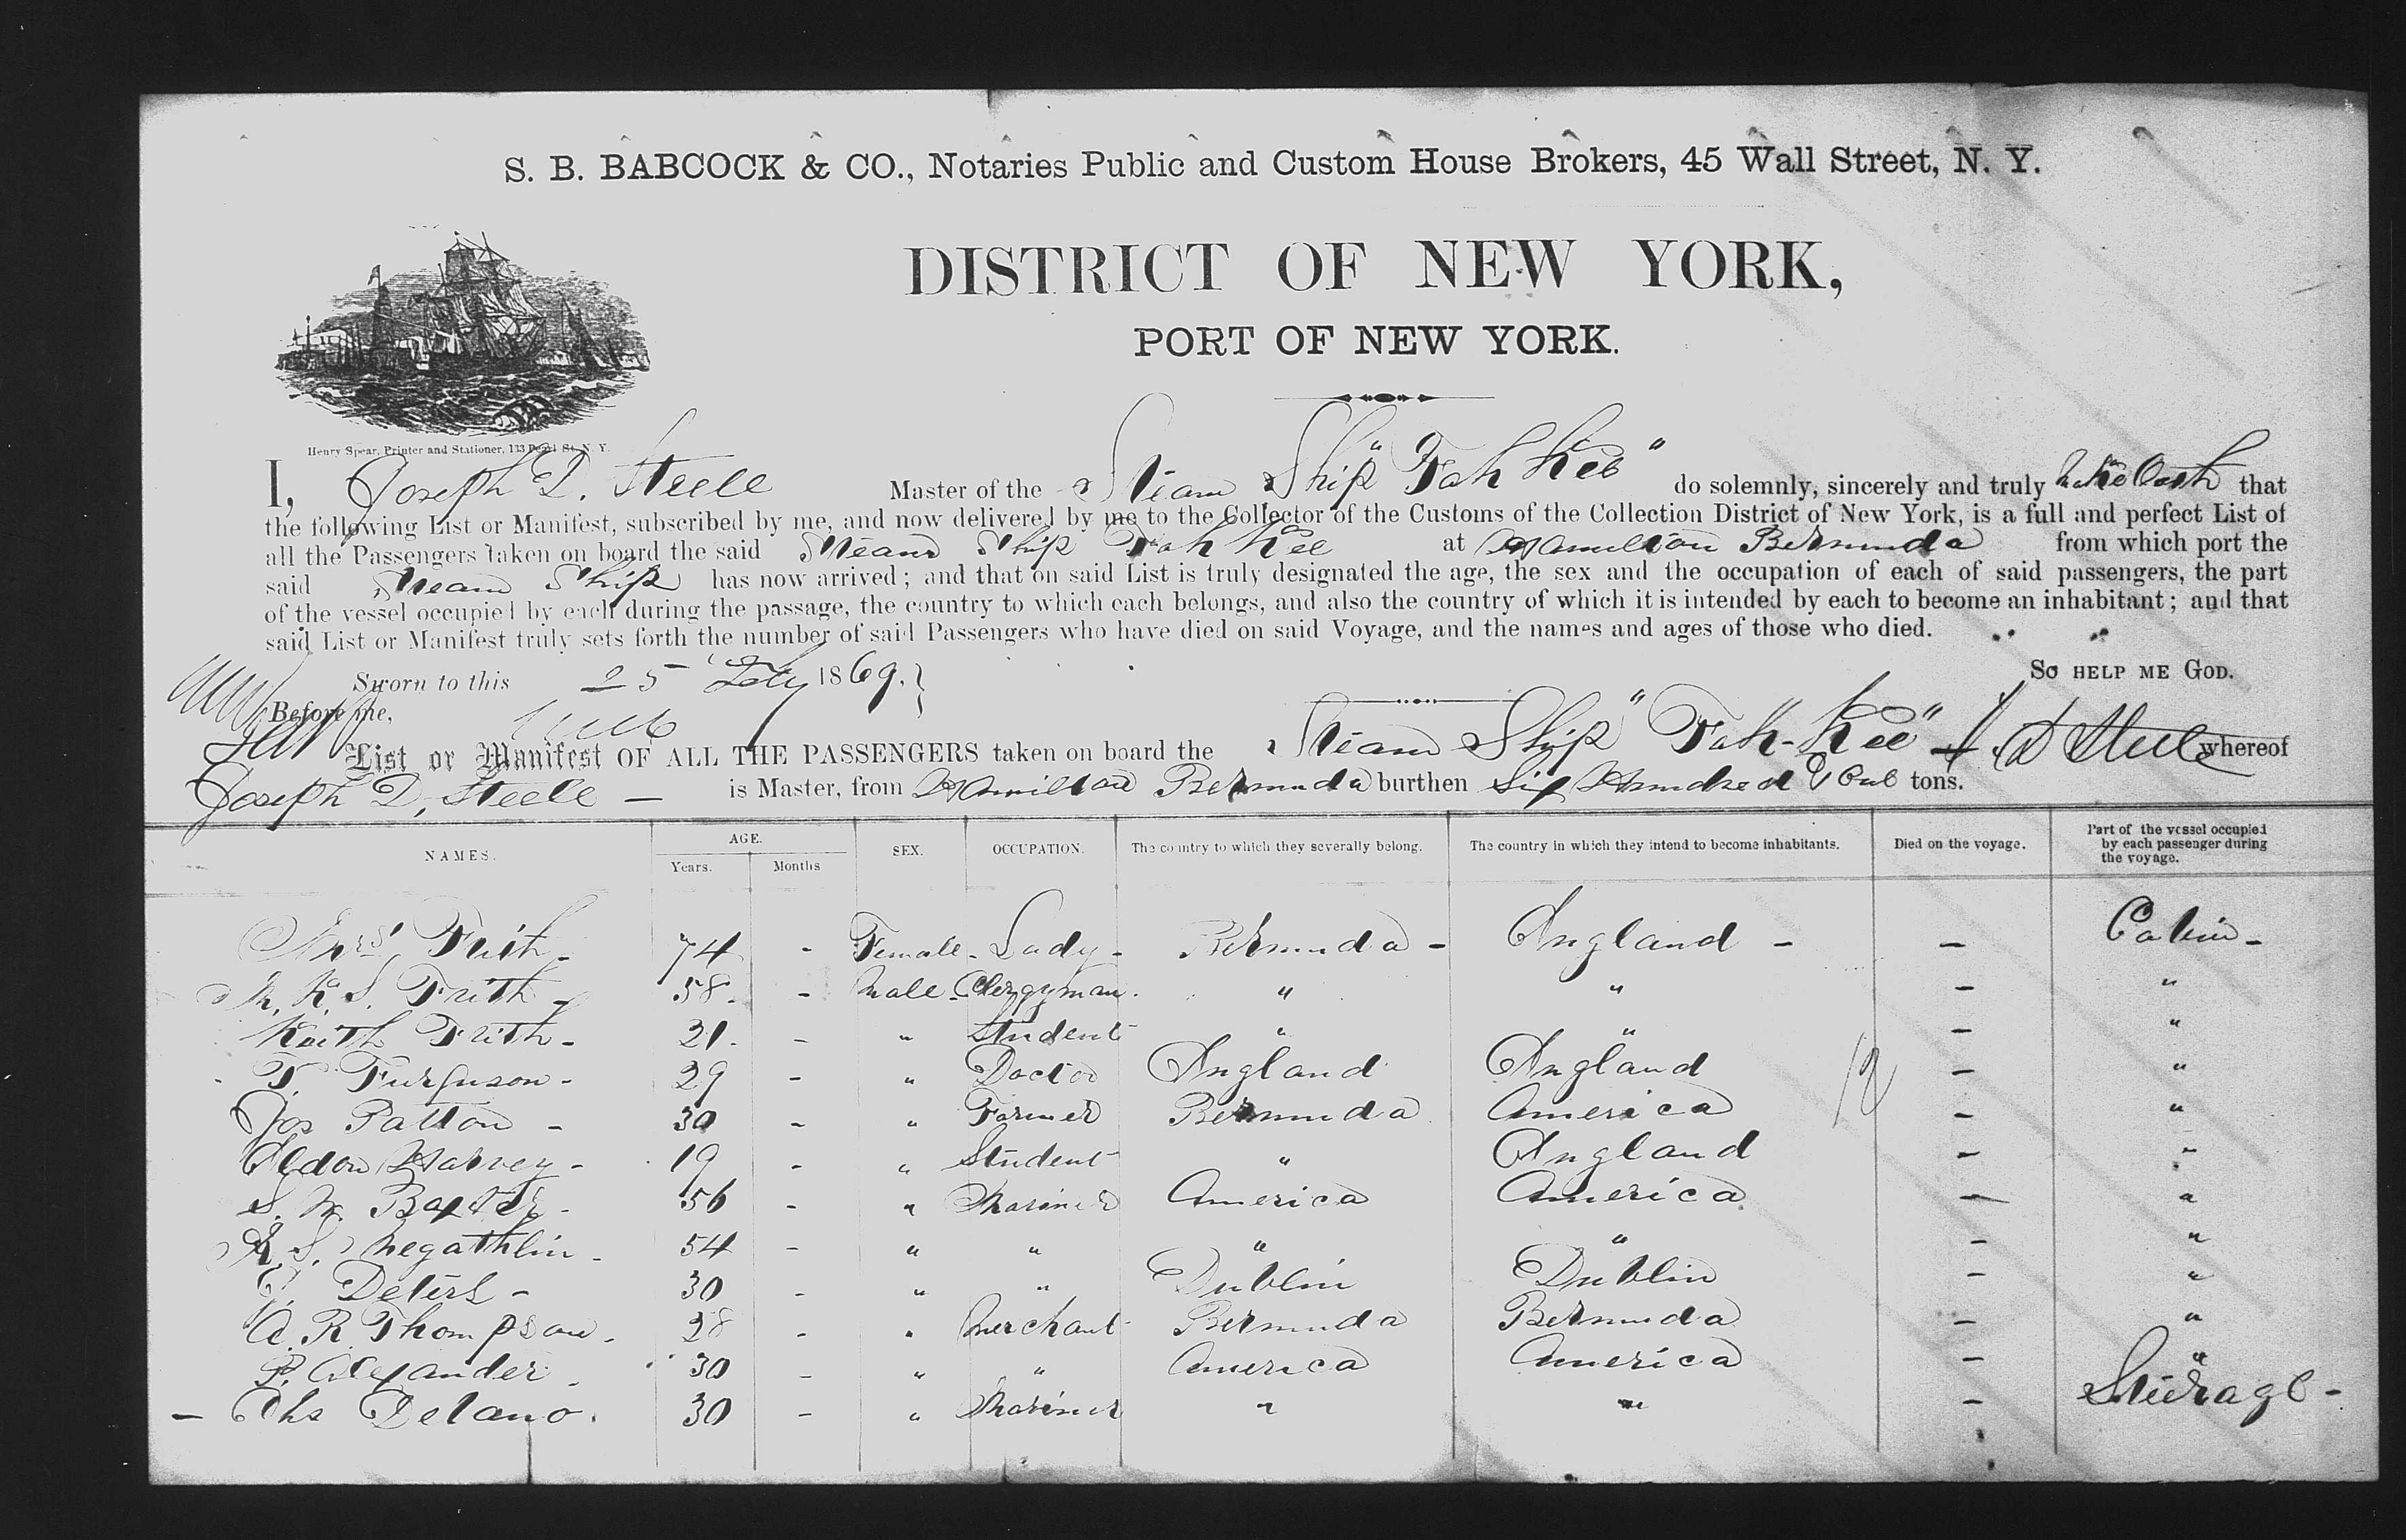 S. B. BABCOCK & CO., Notaries Public and Custom House Brokers, 45 Wall Street, N. Y.
DISTRICT OF NEW YORK,
PORT OF NEW YORK.
Henry Spear, Printer and Stationer, 133 Pearl St. N. Y.
I, Joseph D. Steele Master of the Steam Ship "Fah Kee" do solemnly, sincerely and truly make Oath that
the following List or Manifest, subscribed by me, and now delivered by me to the Collector of the Customs of the Collection District of New York, is a full and perfect List of
all the Passengers taken on board the said Steam Ship Fah Kee at Hamilton Bermuda from which port the
said Steam Ship has now arrived; and that on said List is truly designated the age, the sex and the occupation of each of said passengers, the part
of the vessel occupied by each during the passage, the country to which each belongs, and also the country of which it is intended by each to become an inhabitant; and that
said List or Manifest truly sets forth the number of said Passengers who have died on said Voyage, and the names and ages of those who died.
Sworn to this 25 1869. SO HELP ME GOD.
Before me,
List or Manifest OF ALL THE PASSENGERS taken on board the Steam Ship "Fah-Kee" J. D Steele whereof
Joseph D. Steele — is Master, from Hamilton Bermuda burthen Six Hundred & One tons.
NAMES. AGE. Years. Months SEX. OCCUPATION. The country to which they severally belong. The country in which they intend to become inhabitants. Died on the voyage. Part of the vessel occupied by each passenger during the voyage.
Mrs Frith - 74 - Female - Lady - Bermuda - England - - Cabin -
M. K. S. Frith - 58 - Male - Clergyman. " " - "
Keith Frith - 21. - " Student " " - "
T. Furguson - 29 - " Doctor England England - "
Jos Patton - 30 - " Farmer Bermuda America - "
Eldon Harvey - 19 - " Student " England - "
S. M. Baxter - 56 - " Mariner America America - "
S. Megathlin - 54 - " " " " - "
Peters - 30 - " " Dublin Dublin - "
A. R. Thompson - 28 - " Merchant Bermuda Bermuda - "
P. Alexander - 30 - " " America America - "
— Chs Delano. 30 - " Mariner " " - Steerage -